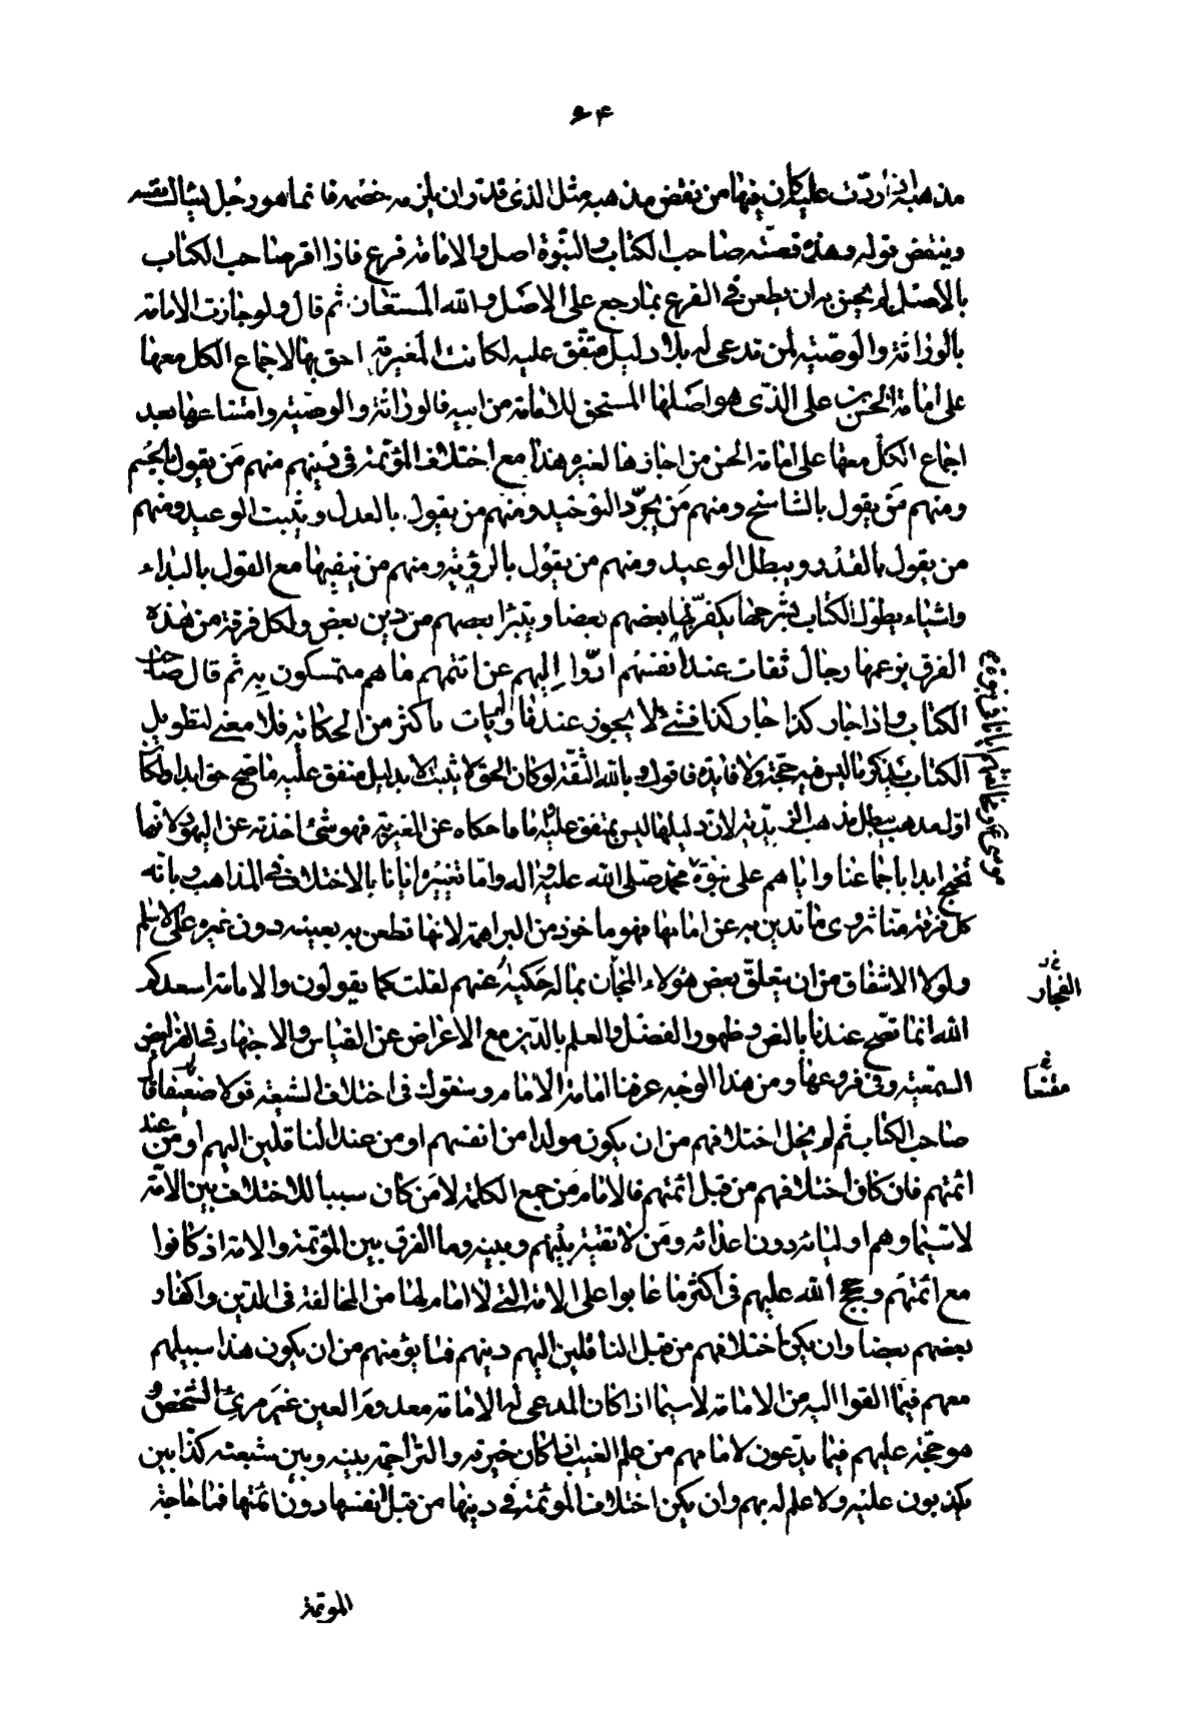 ٦٤
مذهبا اذا ردت عليه كان فيها من نقض مذهبه مثل الذى قدر ان يلزمه خصمه فانما هو رجل يسأل نفسه
وينقض قوله وهذه قصته صاحب الكتاب والنبوة اصل والامامة فرع فاذا اقر صاحب الكتاب
بالاصل لم يحسن به ان يطعن فى الفرع بما رجع على الاصل والله المستعان ثم قال ولو جازت الامامة
بالوراثة والوصية لمن تدعى له بلا دليل متفق عليه لكانت المغيرية احق بها لاجماع الكل معها
على امامة الحسن بن على الذى هو اصلها المستحق للامامة من ابيه فالوراثة والوصية وامتناعها بعد
اجماع الكل معها على امامة الحسن من اجازها لغيره هذا مع اختلاف المؤتمة فى دينهم منهم من يقول بالجسم
ومنهم من يقول بالتناسخ ومنهم من يجرد التوحيد ومنهم من يقول بالعدل ويثبت الوعيد ومنهم
من يقول بالقدر ويبطل الوعيد ومنهم من يقول بالرؤية ومنهم من ينفيها مع القول بالبداء
واشياء يطول الكتاب بشرحها يكفر بها بعضهم بعضا ويتبرأ بعضهم من دين بعض ولكل فرقة من هذه
الفرق بزعمها رجال ثقات عند انفسهم ادوا اليهم عن ائمتهم ما هم متمسكون به ثم قال صاحب
الكتاب واذا جاز كذا جاز كذا فشئ لا يجوز عندنا ولم يات باكثر من الحكاية فلا معنى لتطويل
الكتاب بذكر ما ليس فيه حجة ولا فايدة فاقول وبالله الثقة لو كان الحق لا يثبت الا بدليل متفق عليه ما صح حق ابدا ولكان
اول مذهب يبطل مذهب الزيدية لان دليلها ليس بمتفق عليه فاما ما حكاه عن المغيرية فهو شئ اخذته عن اليهود لانها
تحتج ابدا باجماعنا واياهم على نبوة موسى ع ومخالفتهم ايانا فى نبوة محمد صلى الله عليه واله واما تعييره ايانا بالاختلاف فى المذاهب وبانه
كل فرقة منا تروى ما تدين به عن امامها فهو ماخوذ من البراهمة لانها تطعن به بعينه دون غيره على الاسلم
ولولا الاشفاق من ان يتعلق بعض هؤلاء المجان بما احكيه عنهم لقلت كما يقولون والامامة اسعدكم
الفجار
الله انما تصح عندنا بالنص وظهور الفضل والعلم بالدين مع الاعراض عن القياس والاجتهاد فى الفرائض
السمعية وفى فروعها ومن هذا الوجه عرفنا امامة الامام وسنقول فى اختلاف الشيعة قولا
مقنعا
صاحب الكتاب ثم لم يخل اختلافهم من ان يكون مولدا من انفسهم او من عند الناقلين اليهم او من عند
ائمتهم فان كان اختلافهم من قبل ائمتهم فالامام من جمع الكلمة لا من كان سببا للاختلاف بين الامة
لا سيما وهم اوليائه دون اعدائه ومن لا تقية بينهم وبينه وما الفرق بين المؤتمة والامة اذ كانوا
مع ائمتهم وحجج الله عليهم فى اكثر ما عابوا على الامة التى لا امام لها من المخالفة فى الدين واكفار
بعضهم بعضا وان يكن اختلافهم من قبل الناقلين اليهم دينهم فما يؤمنهم من ان يكون هذا سبيلهم
معهم فيما القوا اليه من الامامة لا سيما اذا كان المدعى له الامامة معدوم العين غير مرئى الشخص
وهو حجة عليهم فيما يدعون لامامهم من علم الغيب اذا كان خيرته والتراجمة بينه وبين شيعته كذابين
يكذبون عليه ولا علم له بهم وان يكن اختلاف المؤتمة فى دينها من قبل انفسها دون ائمتها فما حاجة
الموتمة